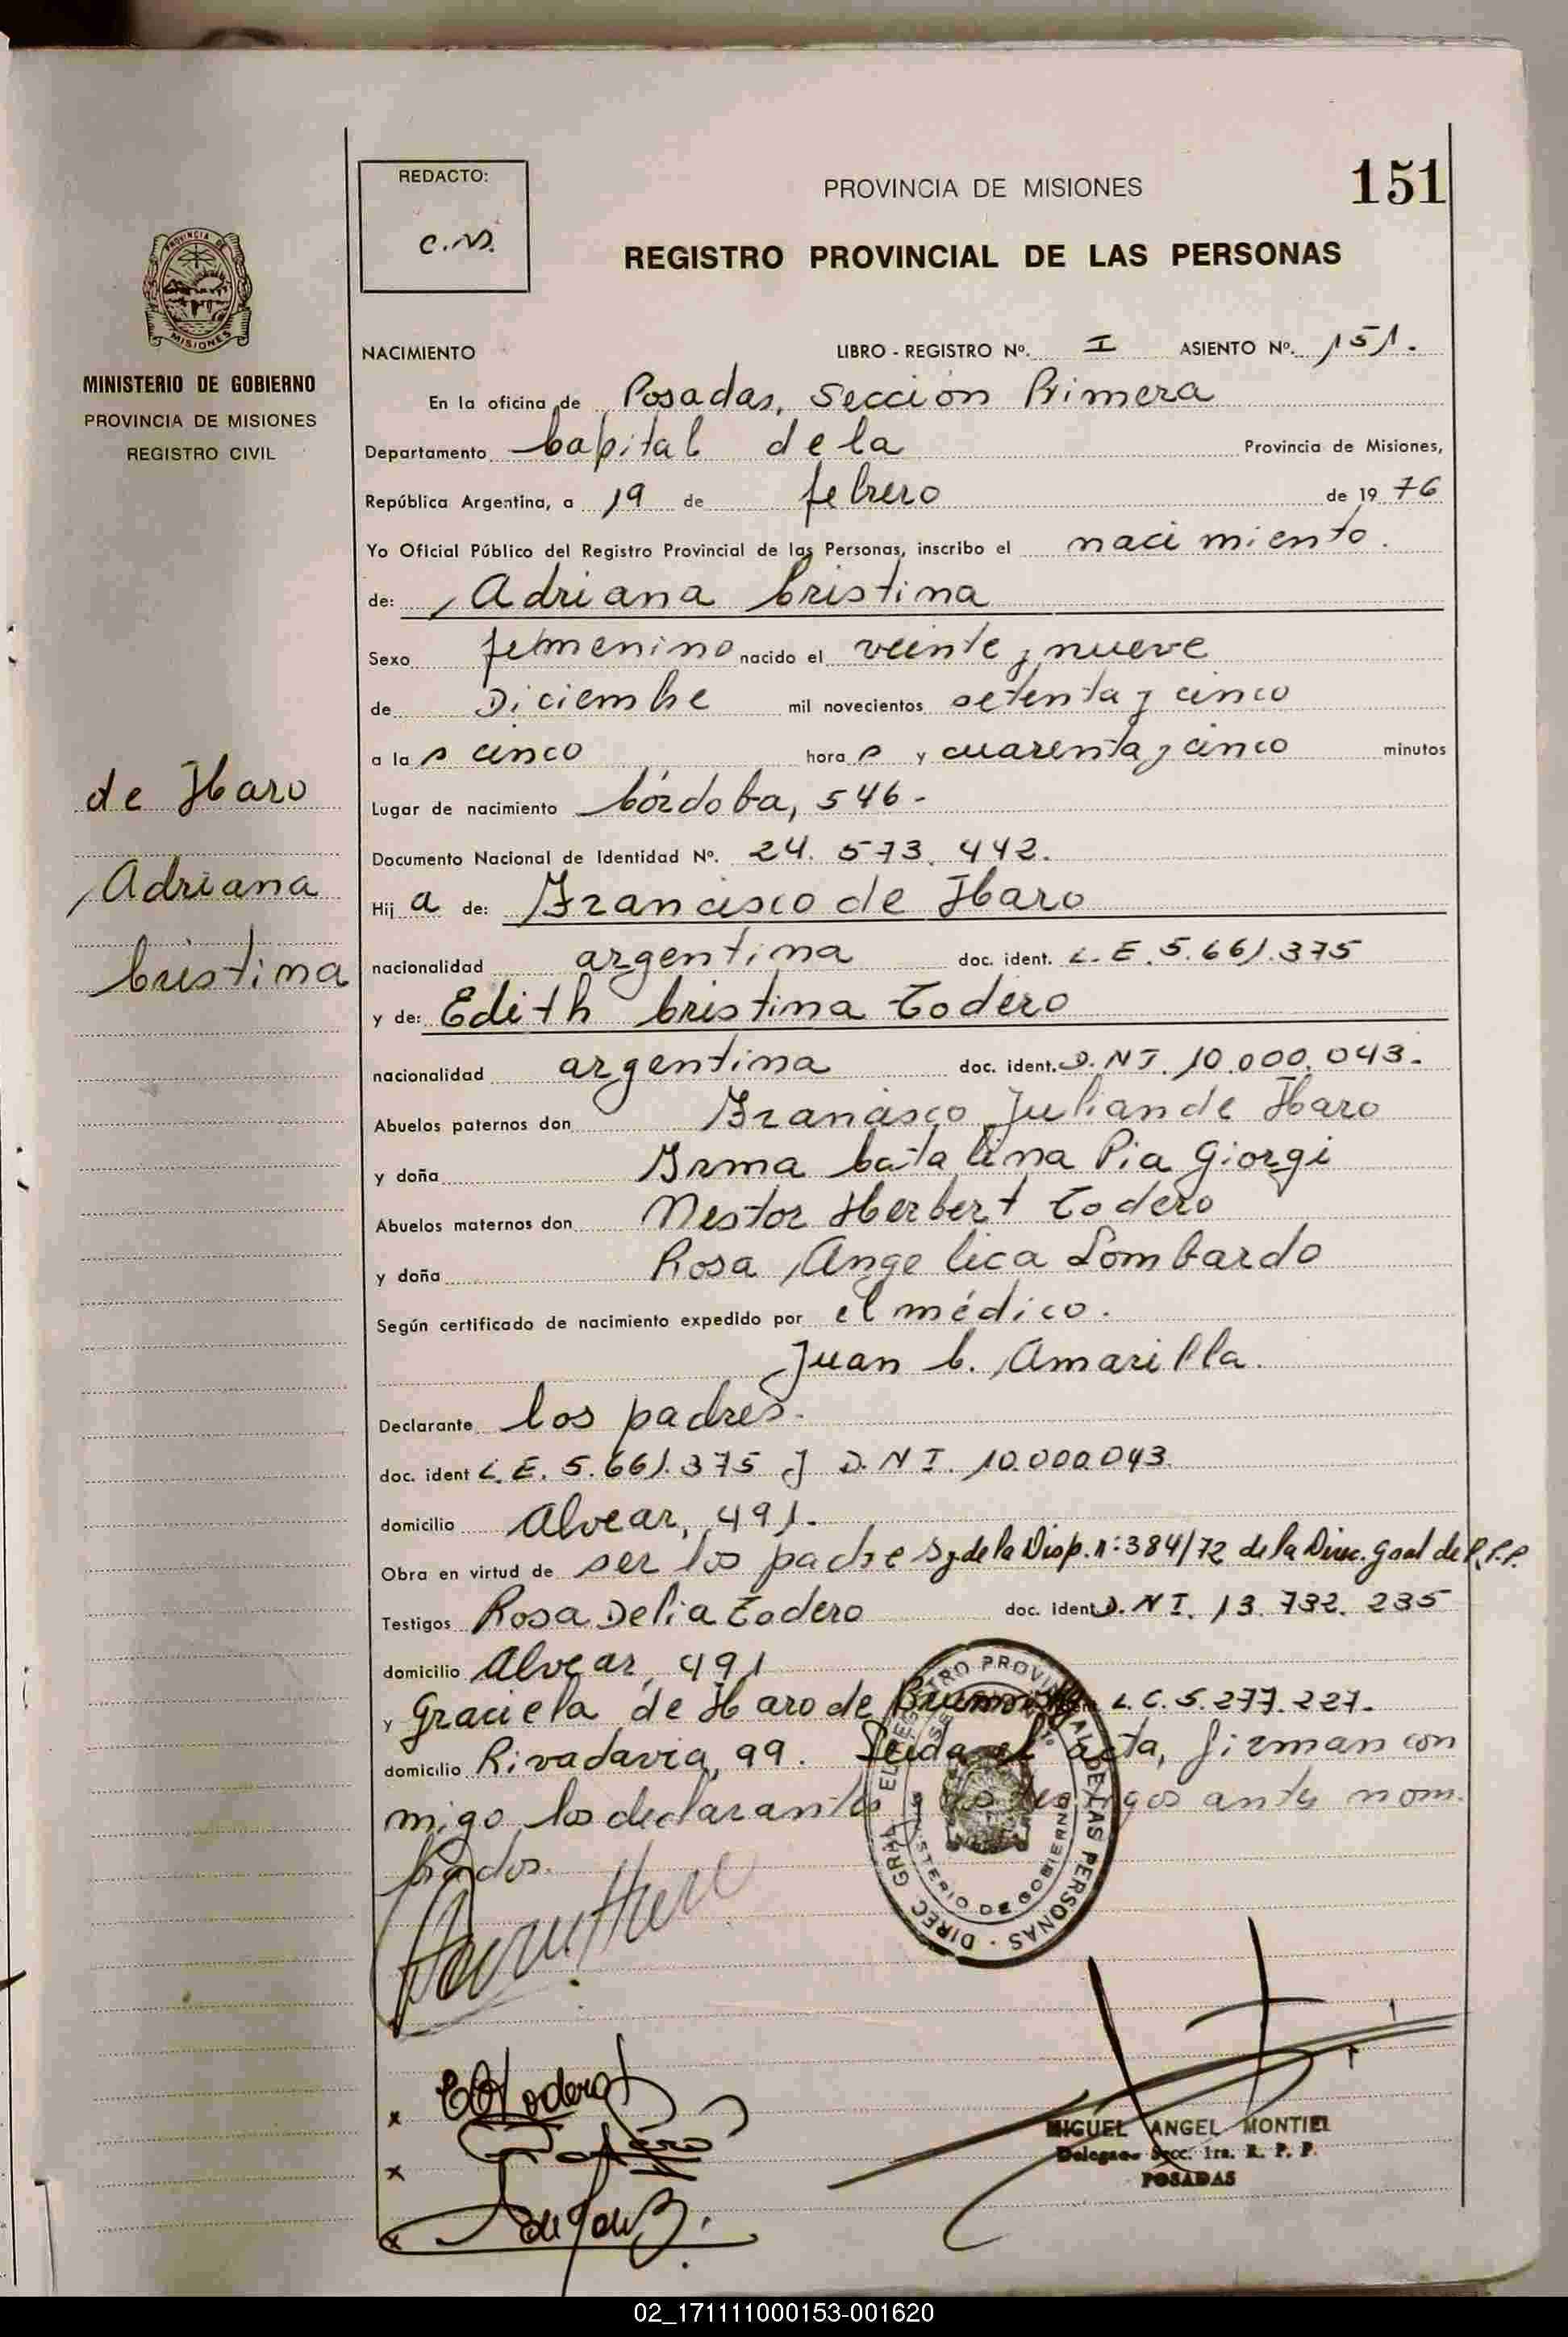 151
REDACTO:
PROVINCIA DE MISIONES
C.N.
REGISTRO PROVINCIAL DE LAS PERSONAS
PROVINCIA DE
MISIONES
MINISTERIO DE GOBIERNO
PROVINCIA DE MISIONES
REGISTRO CIVIL
de Haro
Adriana
Cristina
NACIMIENTO LIBRO - REGISTRO Nº. I ASIENTO Nº. 151.
En la oficina de Posadas, Sección Primera
Departamento Capital de la Provincia de Misiones,
República Argentina, a 19 de febrero de 19 76
Yo Oficial Público del Registro Provincial de las Personas, inscribo el nacimiento.
de: Adriana Cristina
Sexo femenino nacido el veinte y nueve
de Diciembre mil novecientos setenta y cinco
a la s cinco hora s y cuarenta y cinco minutos
Lugar de nacimiento Córdoba, 546-
Documento Nacional de Identidad Nº. 24.573.442.
Hij a de: Francisco de Haro
nacionalidad argentina doc. ident. L.E.5.661.375
y de: Edith Cristina Todero
nacionalidad argentina doc. ident. D.NI. 10.000.043.
Abuelos paternos don Francisco Julian de Haro
y doña Irma Catalina Pia Giorgi
Abuelos maternos don Nestor Herbert Todero
y doña Rosa Angelica Lombardo
Según certificado de nacimiento expedido por el médico.
Juan C. Amarilla.
Declarante los padres.
doc. ident L.E. 5.661.375 y D.NI. 10.000.043
domicilio Alvear, 491.
Obra en virtud de ser los padres y de la Disp. n: 384/72 de la Direc. gral de R.P.P.
Testigos Rosa Delia Todero doc. ident D.NI. 13.732.235
domicilio Alvear, 491
y Graciela de Haro de L.C.5.277.227.
domicilio Rivadavia, 99. Leida el acta, firman con
migo los declarantes y los testigos antes nom
brados.
DIREC. GRAL. EL REGISTRO PROVINCIAL DE LAS PERSONAS
MINISTERIO DE GOBIERNO
MIGUEL ANGEL MONTIEL
Delegado Secc. 1ra. R. P. P.
POSADAS
02_171111000153-001620